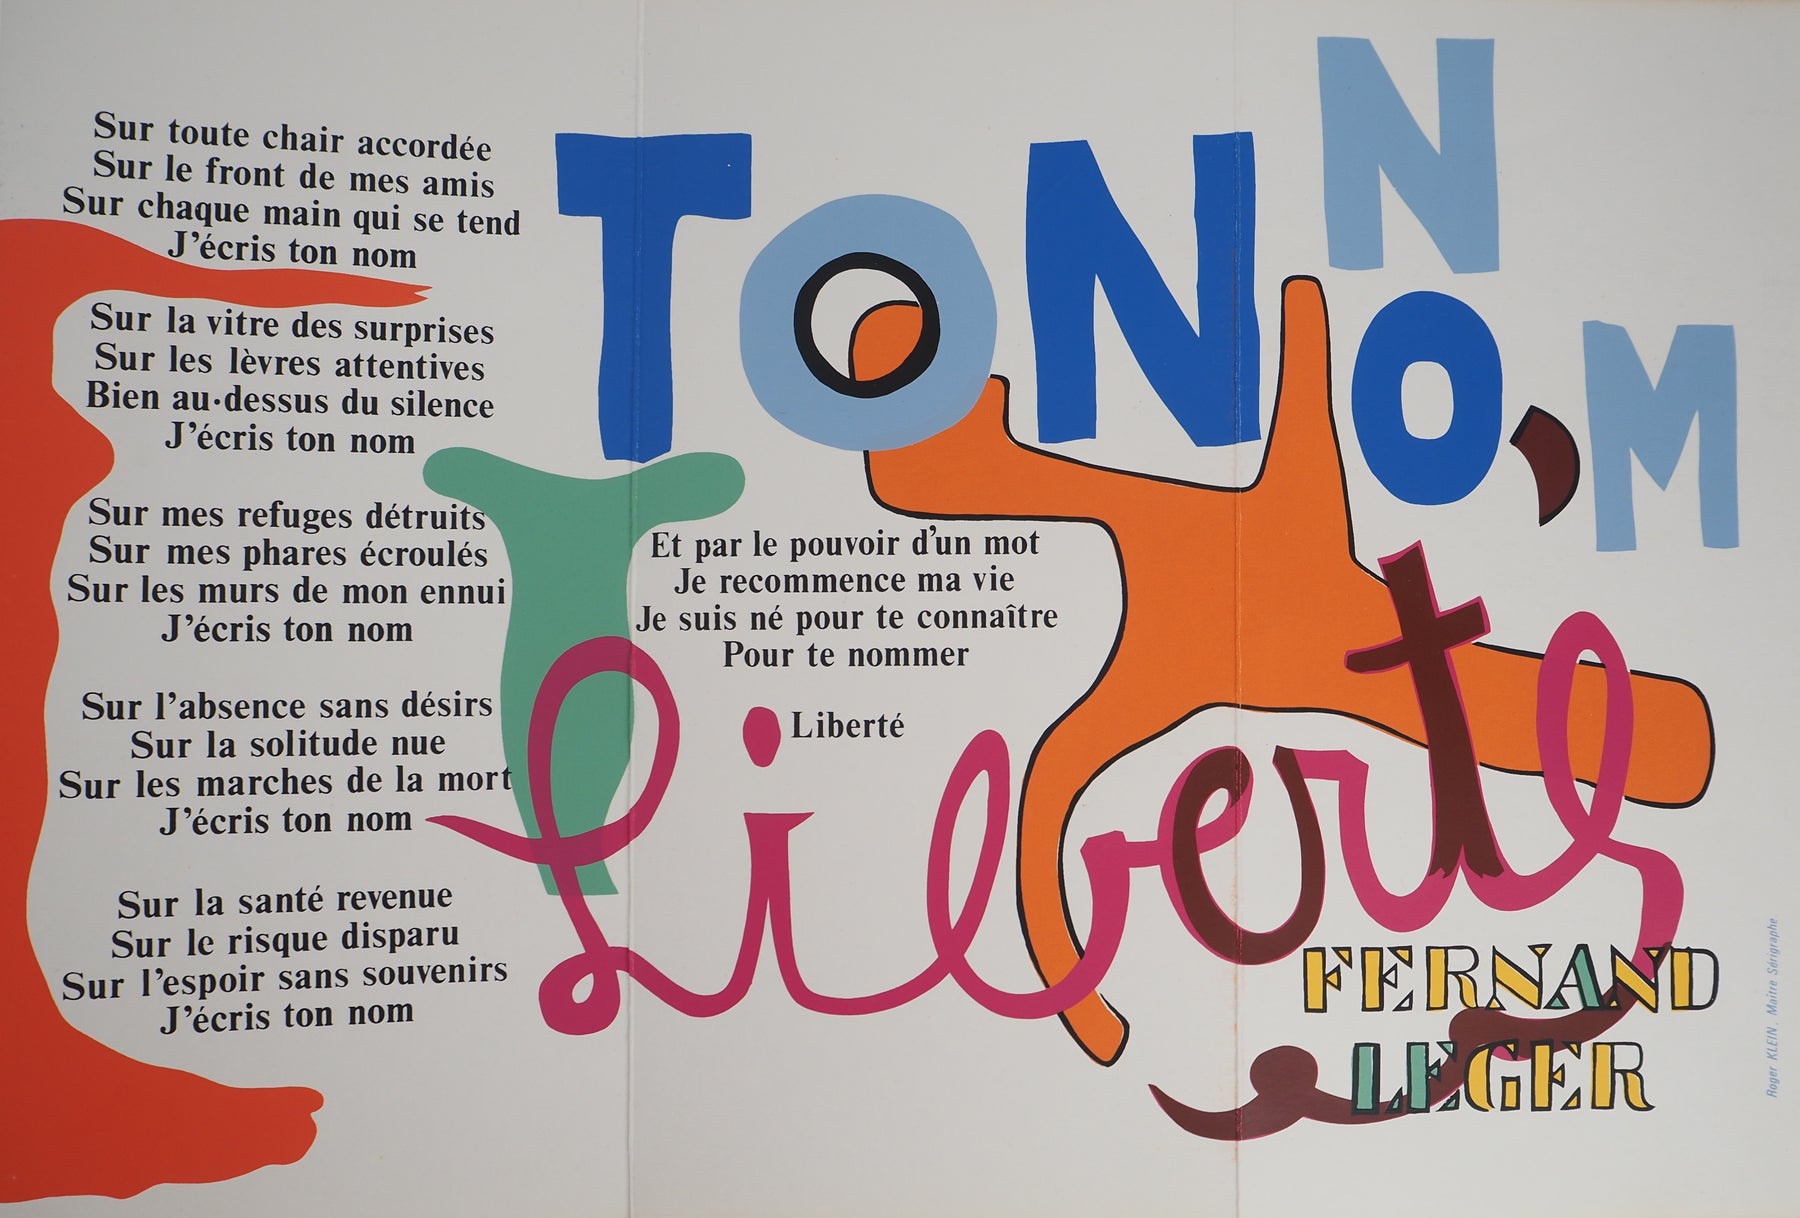 Sur toute chair accordée
Sur le front de mes amis
Sur chaque main qui se tend
J'écris ton nom
Sur la vitre des surprises
Sur les lèvres attentives
Bien au·dessus du silence
J'écris ton nom
Sur mes refuges détruits
Sur mes phares écroulés
Sur les murs de mon ennui
J'écris ton nom
Sur l'absence sans désirs
Sur la solitude nue
Sur les marches de la mort
J'écris ton nom
Sur la santé revenue
Sur le risque disparu
Sur l'espoir sans souvenirs
J'écris ton nom
TON NOM,
Et par le pouvoir d'un mot
Je recommence ma vie
Je suis né pour te connaître
Pour te nommer
Liberté
Liberté
FERNAND
LEGER
Roger KLEIN, Maître Sérigraphe